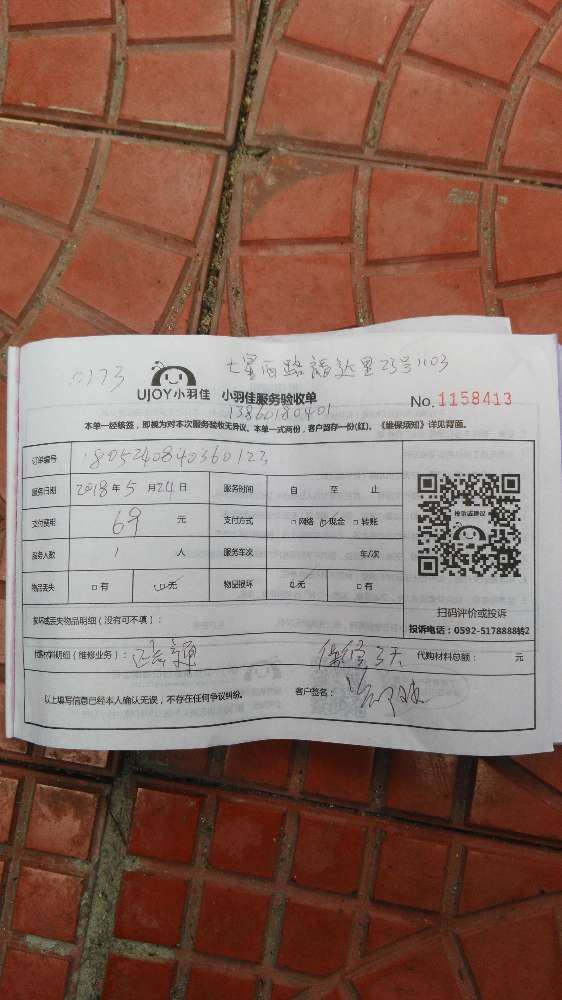 0173
七星西路福达里23号1103
UJOY小羽佳 小羽佳服务验收单 No.1158413
13860180401
本单一经核签，即视为对本次服务验收无异议。本单一式两份，客户留存一份(红)。《维保须知》详见背面。
订单编号 1805240840360123
服务日期 2018年5月24日 服务时间 自 至 止
支付费用 69 元 支付方式 □网络 ☑现金 □转账
服务人数 1 人 服务车次 车/次
物品丢失 □有 ☑无 物品损坏 ☑无 □有
投诉或建议
扫码评价或投诉
投诉电话：0592-5178888转2
损坏或丢失物品明细（没有可不填）：
代购材料明细（维修业务）： 保修3天 代购材料总额： 元
以上填写信息已经本人确认无误，不存在任何争议纠纷。 客户签名：